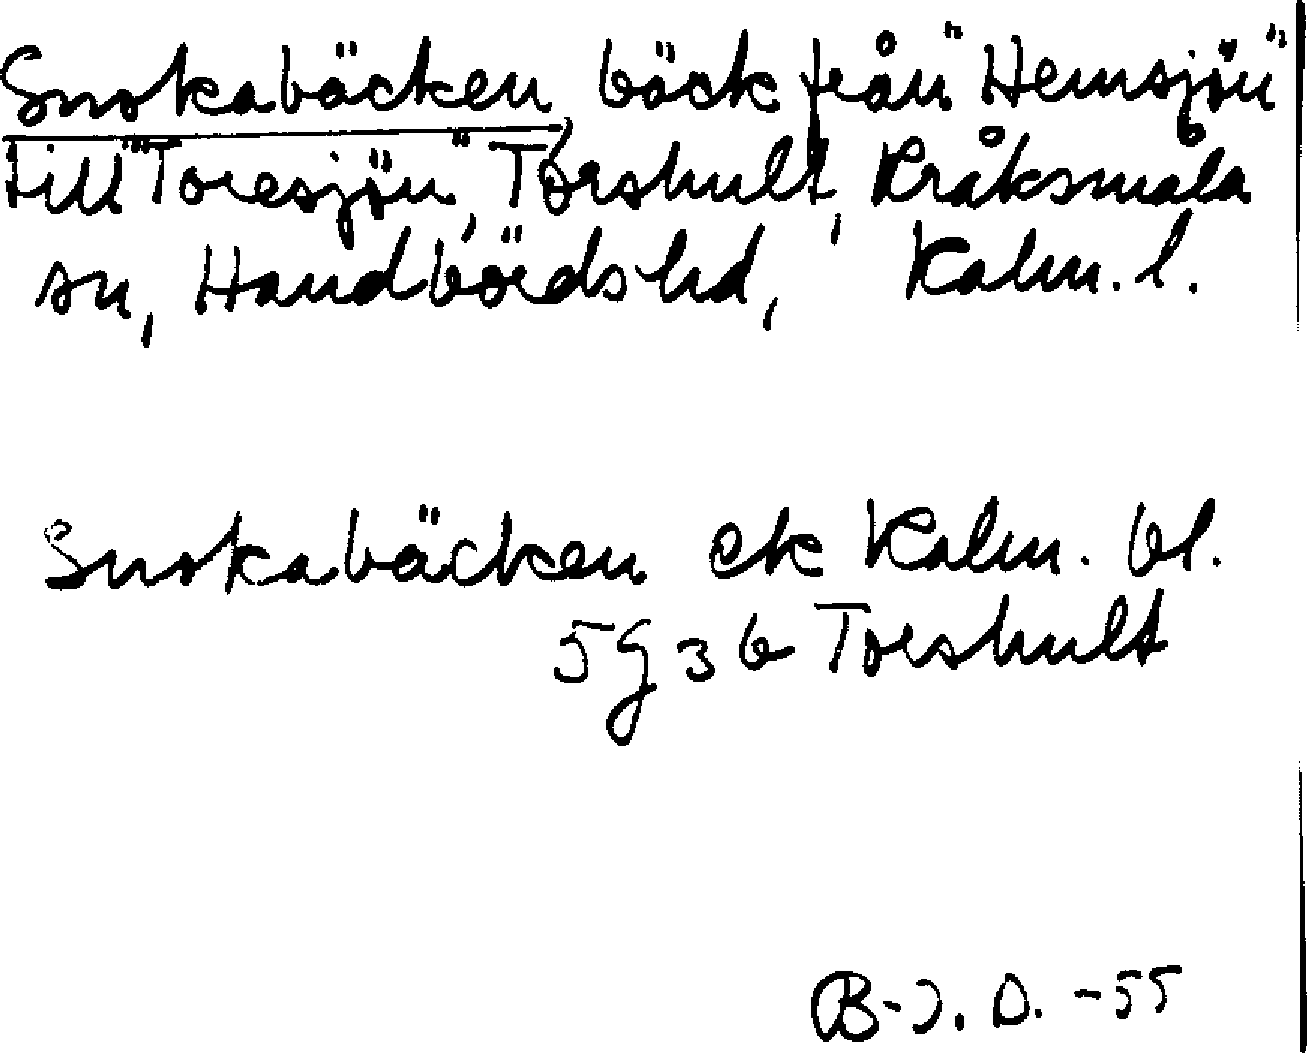 Snokabäcken, bäck från "Hemsjön"
till "Toresjön", Torshult, Kråksmåla
sn, Handbörds hd, Kalm. l.
Snokabäcken ek Kalm. bl.
5g 3b Torshult
B-J. D. -55